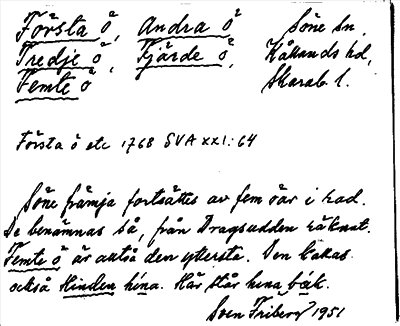 Första ö, Andra ö Söne sn,
Tredje ö, Fjärde ö, Kållands hd,
Femte ö Skarab. l.
Första ö etc 1768 SVA XXI:64
Söne främja fortsättes av fem öar i rad.
De benämnas så, från Dragsudden räknat.
Femte ö är alltså den yttersta. Den kallas
också Hinden hina. Här står hina båk.
Sven Friberg 1951